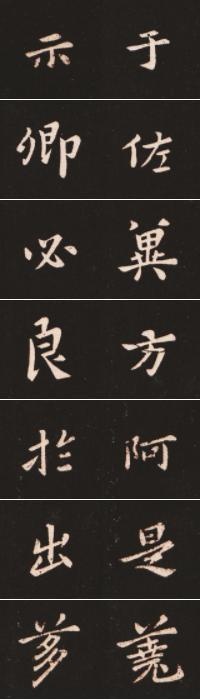 示于
卿佐
必冀
良方
於阿
出是
芻蕘